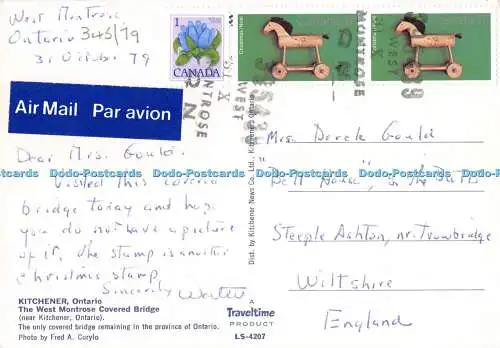 West Montrose
Ontario 345/79
31 October 79
1
CANADA
Christmas Noël
Canada
WEST
MONTROSE
Air Mail Par avion
Dear Mrs. Gould.
Visited this covered
bridge today and hope
you do not have a picture
of it. The stamp is another
christmas stamp
Sincerely Walter
Mrs. Derek Gould
"Bell House", on the
Steeple Ashton, nr. Trowbridge
Wiltshire
England
Dodo-Postcards Dodo-Postcards Dodo-Postcards Dodo-Postcards Dodo-Postcards
Dist. by Kitchener News Co. Ltd., Kitchener, Ontario
KITCHENER, Ontario
The West Montrose Covered Bridge
(near Kitchener, Ontario).
The only covered bridge remaining in the province of Ontario.
Photo by Fred A. Corylo
A
Traveltime
PRODUCT
LS-4207